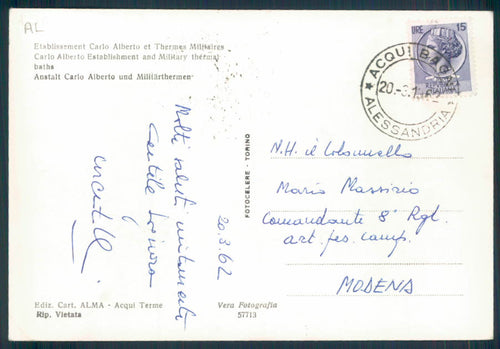 AL
Etablissement Carlo Alberto et Thermes Militaires
Carlo Alberto Establishment and Military thermal
baths
Anstalt Carlo Alberto und Militärthermen
LIRE 15
ACQUI BAGNI
20.-3.1962
ALESSANDRIA
Molti saluti unitamente
Gentile Signora
20.3.62
FOTOCELERE - TORINO
N.H. il Colonnello
Mario Massirio
Comandante 8° Rgt.
art. pes. camp.
MODENA
Ediz. Cart. ALMA - Acqui Terme
Rip. Vietata
Vera Fotografia
57713